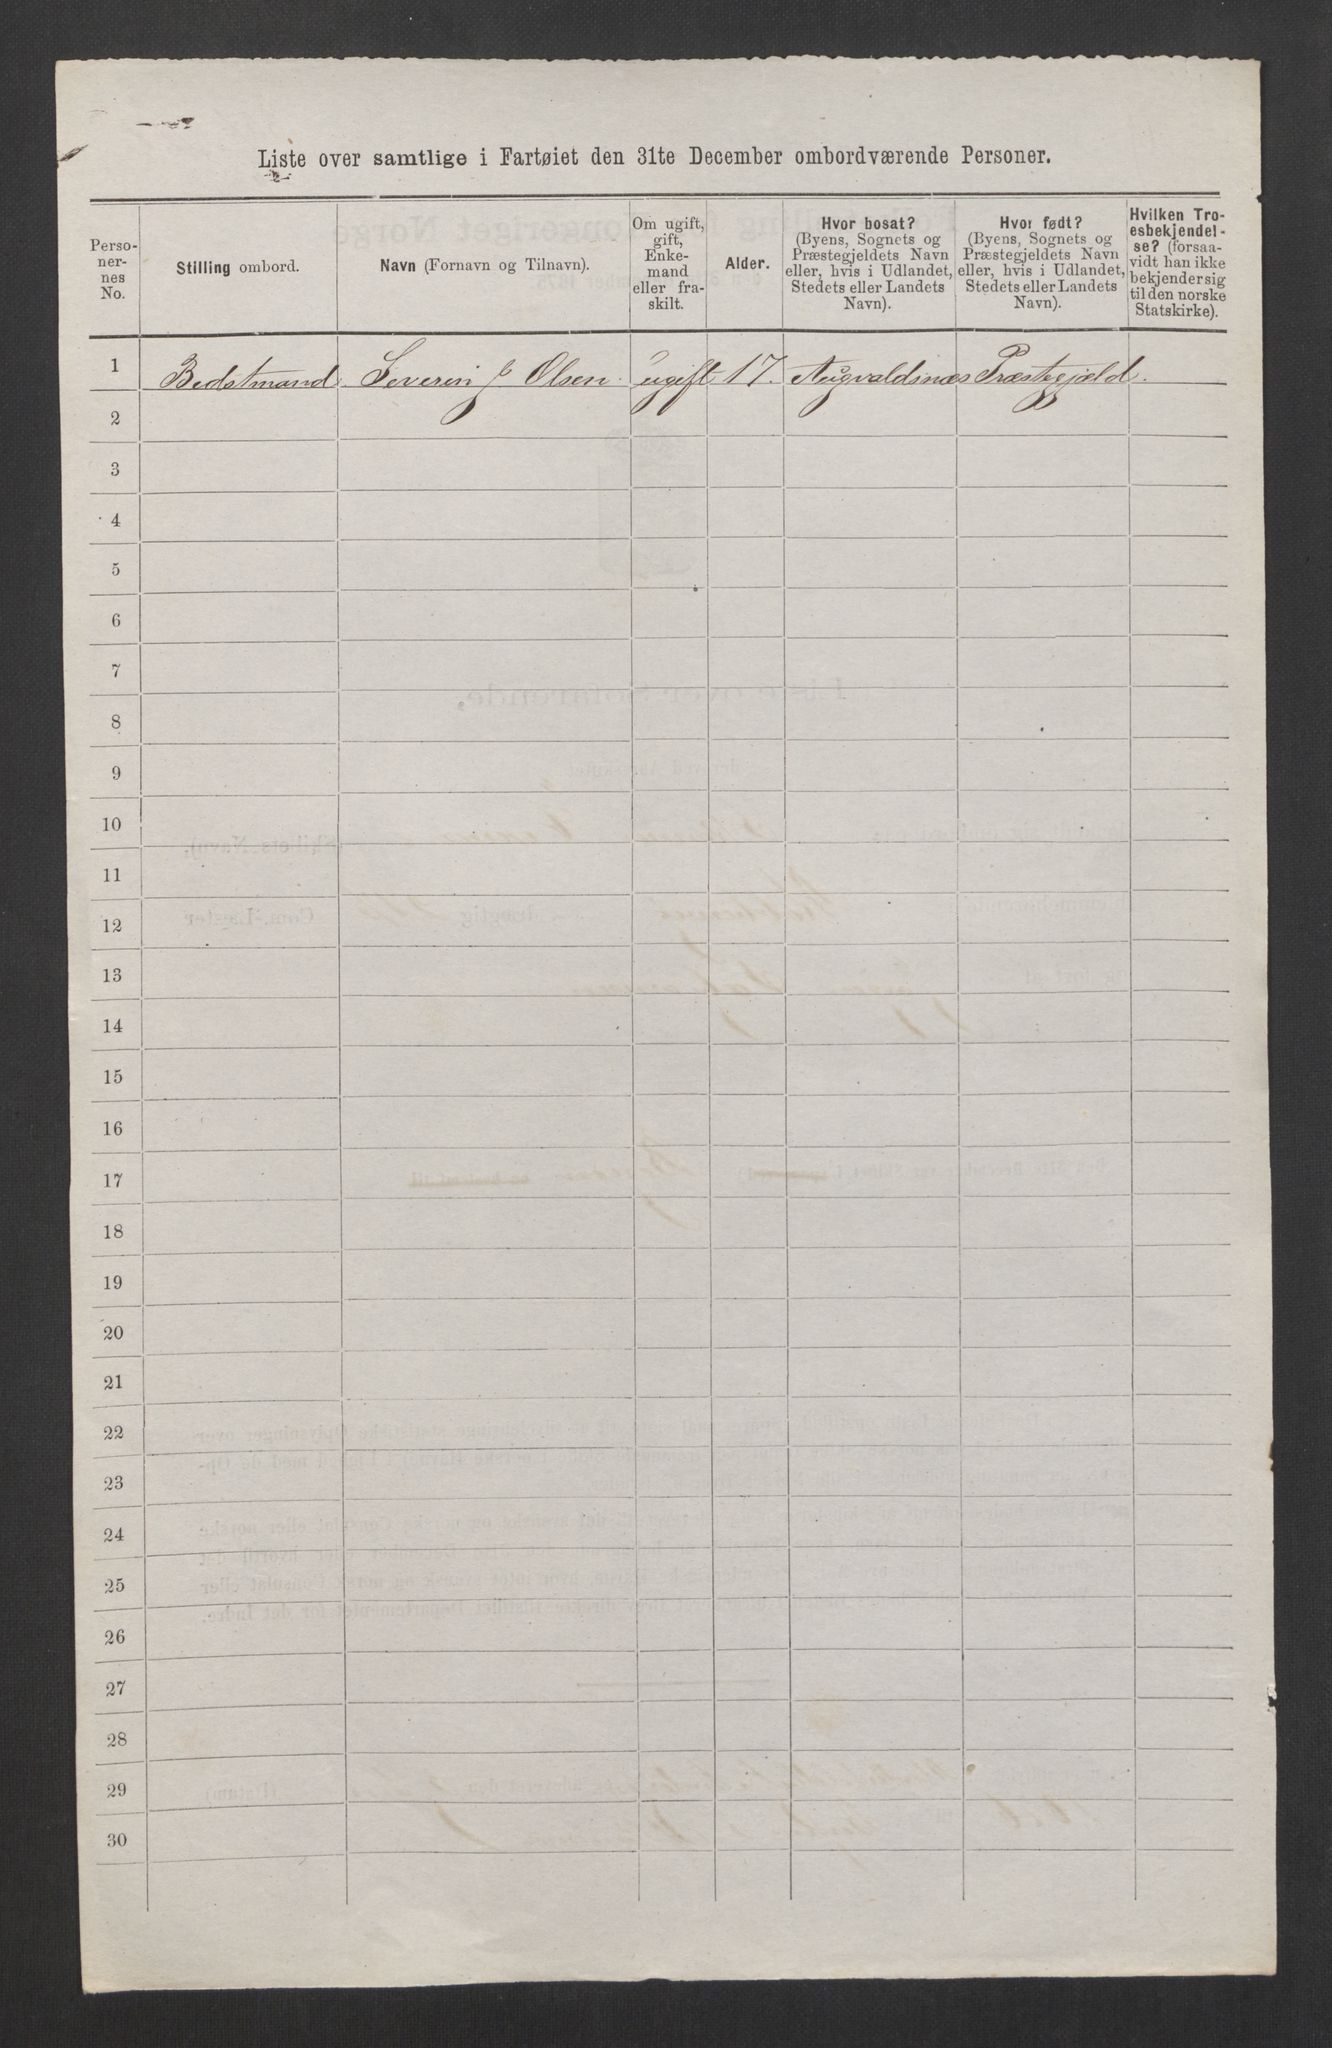 Liste over samtlige i Fartøiet den 31te December ombordværende Personer.
Perso-
ner-
nes
No.
Stilling ombord.
Navn (Fornavn og Tilnavn).
Om ugift,
gift,
Enke-
mand
eller fra-
skilt.
Alder.
Hvor bosat?
(Byens, Sognets og
Præstegjeldets Navn
eller, hvis i Udlandet,
Stedets eller Landets
Navn).
Hvor født?
(Byens, Sognets og
Præstegjeldets Navn
eller, hvis i Udlandet,
Stedets eller Landets
Navn).
Hvilken Tro-
esbekjendel-
se? (forsaa-
vidt han ikke
bekjender sig
til den norske
Statskirke).
1 Bedstmand Severin Olsen. ugift 17. Augvaldsnæs Præstegjæld.
2
3
4
5
6
7
8
9
10
11
12
13
14
15
16
17
18
19
20
21
22
23
24
25
26
27
28
29
30